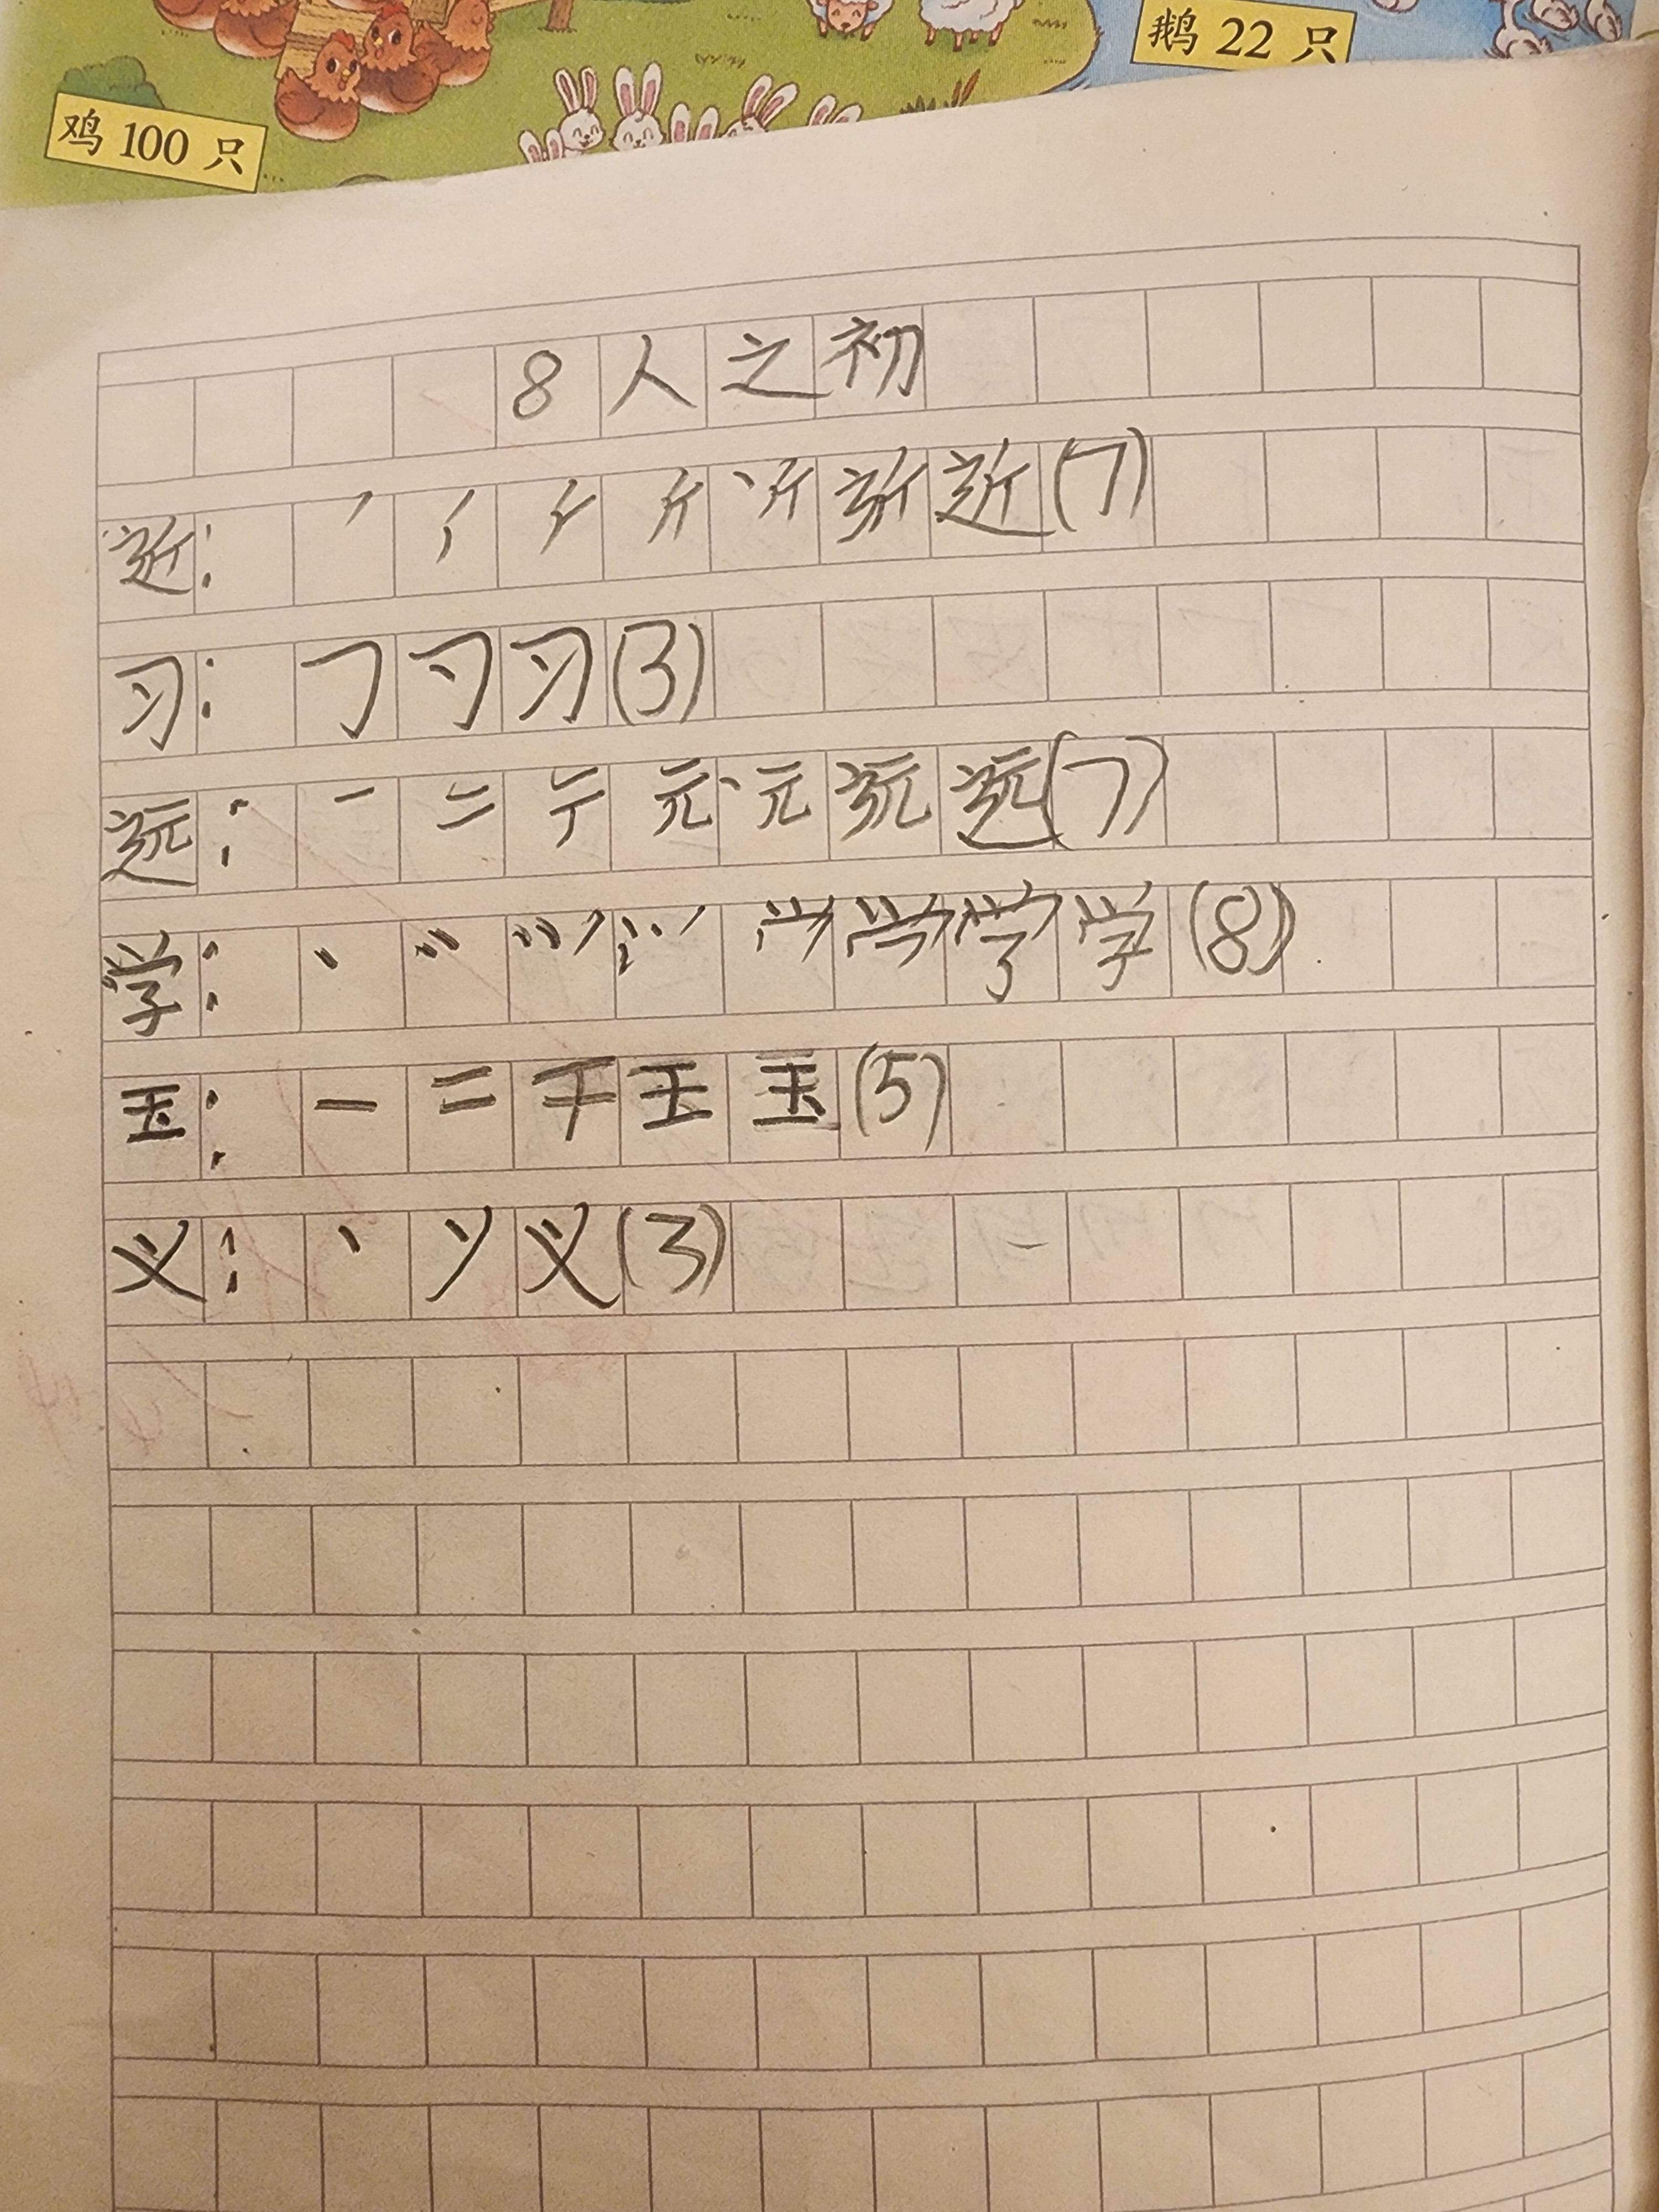 鹅 22 只
鸡 100 只
8人之初
近： ㇒ 𠂆 斤 近(7)
习： 𠃌 习(3)
远： 一 二 亍 元 远(7)
学： 丶 学(8)
玉： 一 二 干 王 玉(5)
义： 丶 义(3)